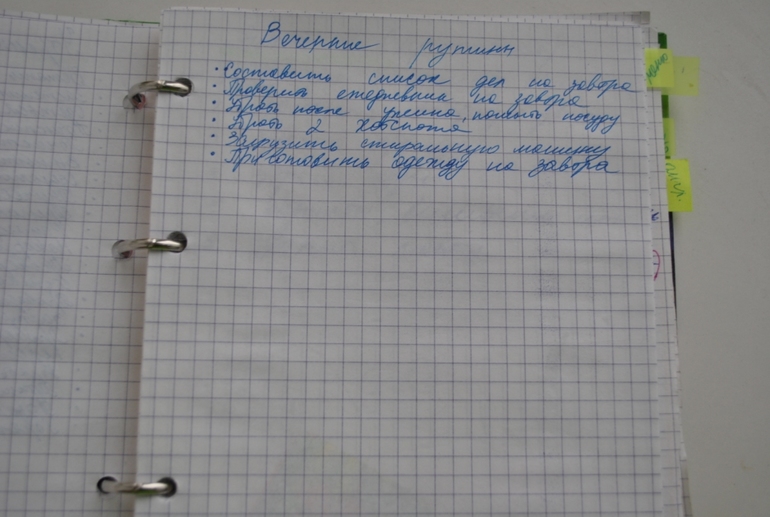 Вечерние рутины
· Составить список дел на завтра
· Проверить ежедневник на завтра
· Убрать после ужина, помыть посуду
· Убрать 2 хотспота
· Загрузить стиральную машину
· Приготовить одежду на завтра
меню